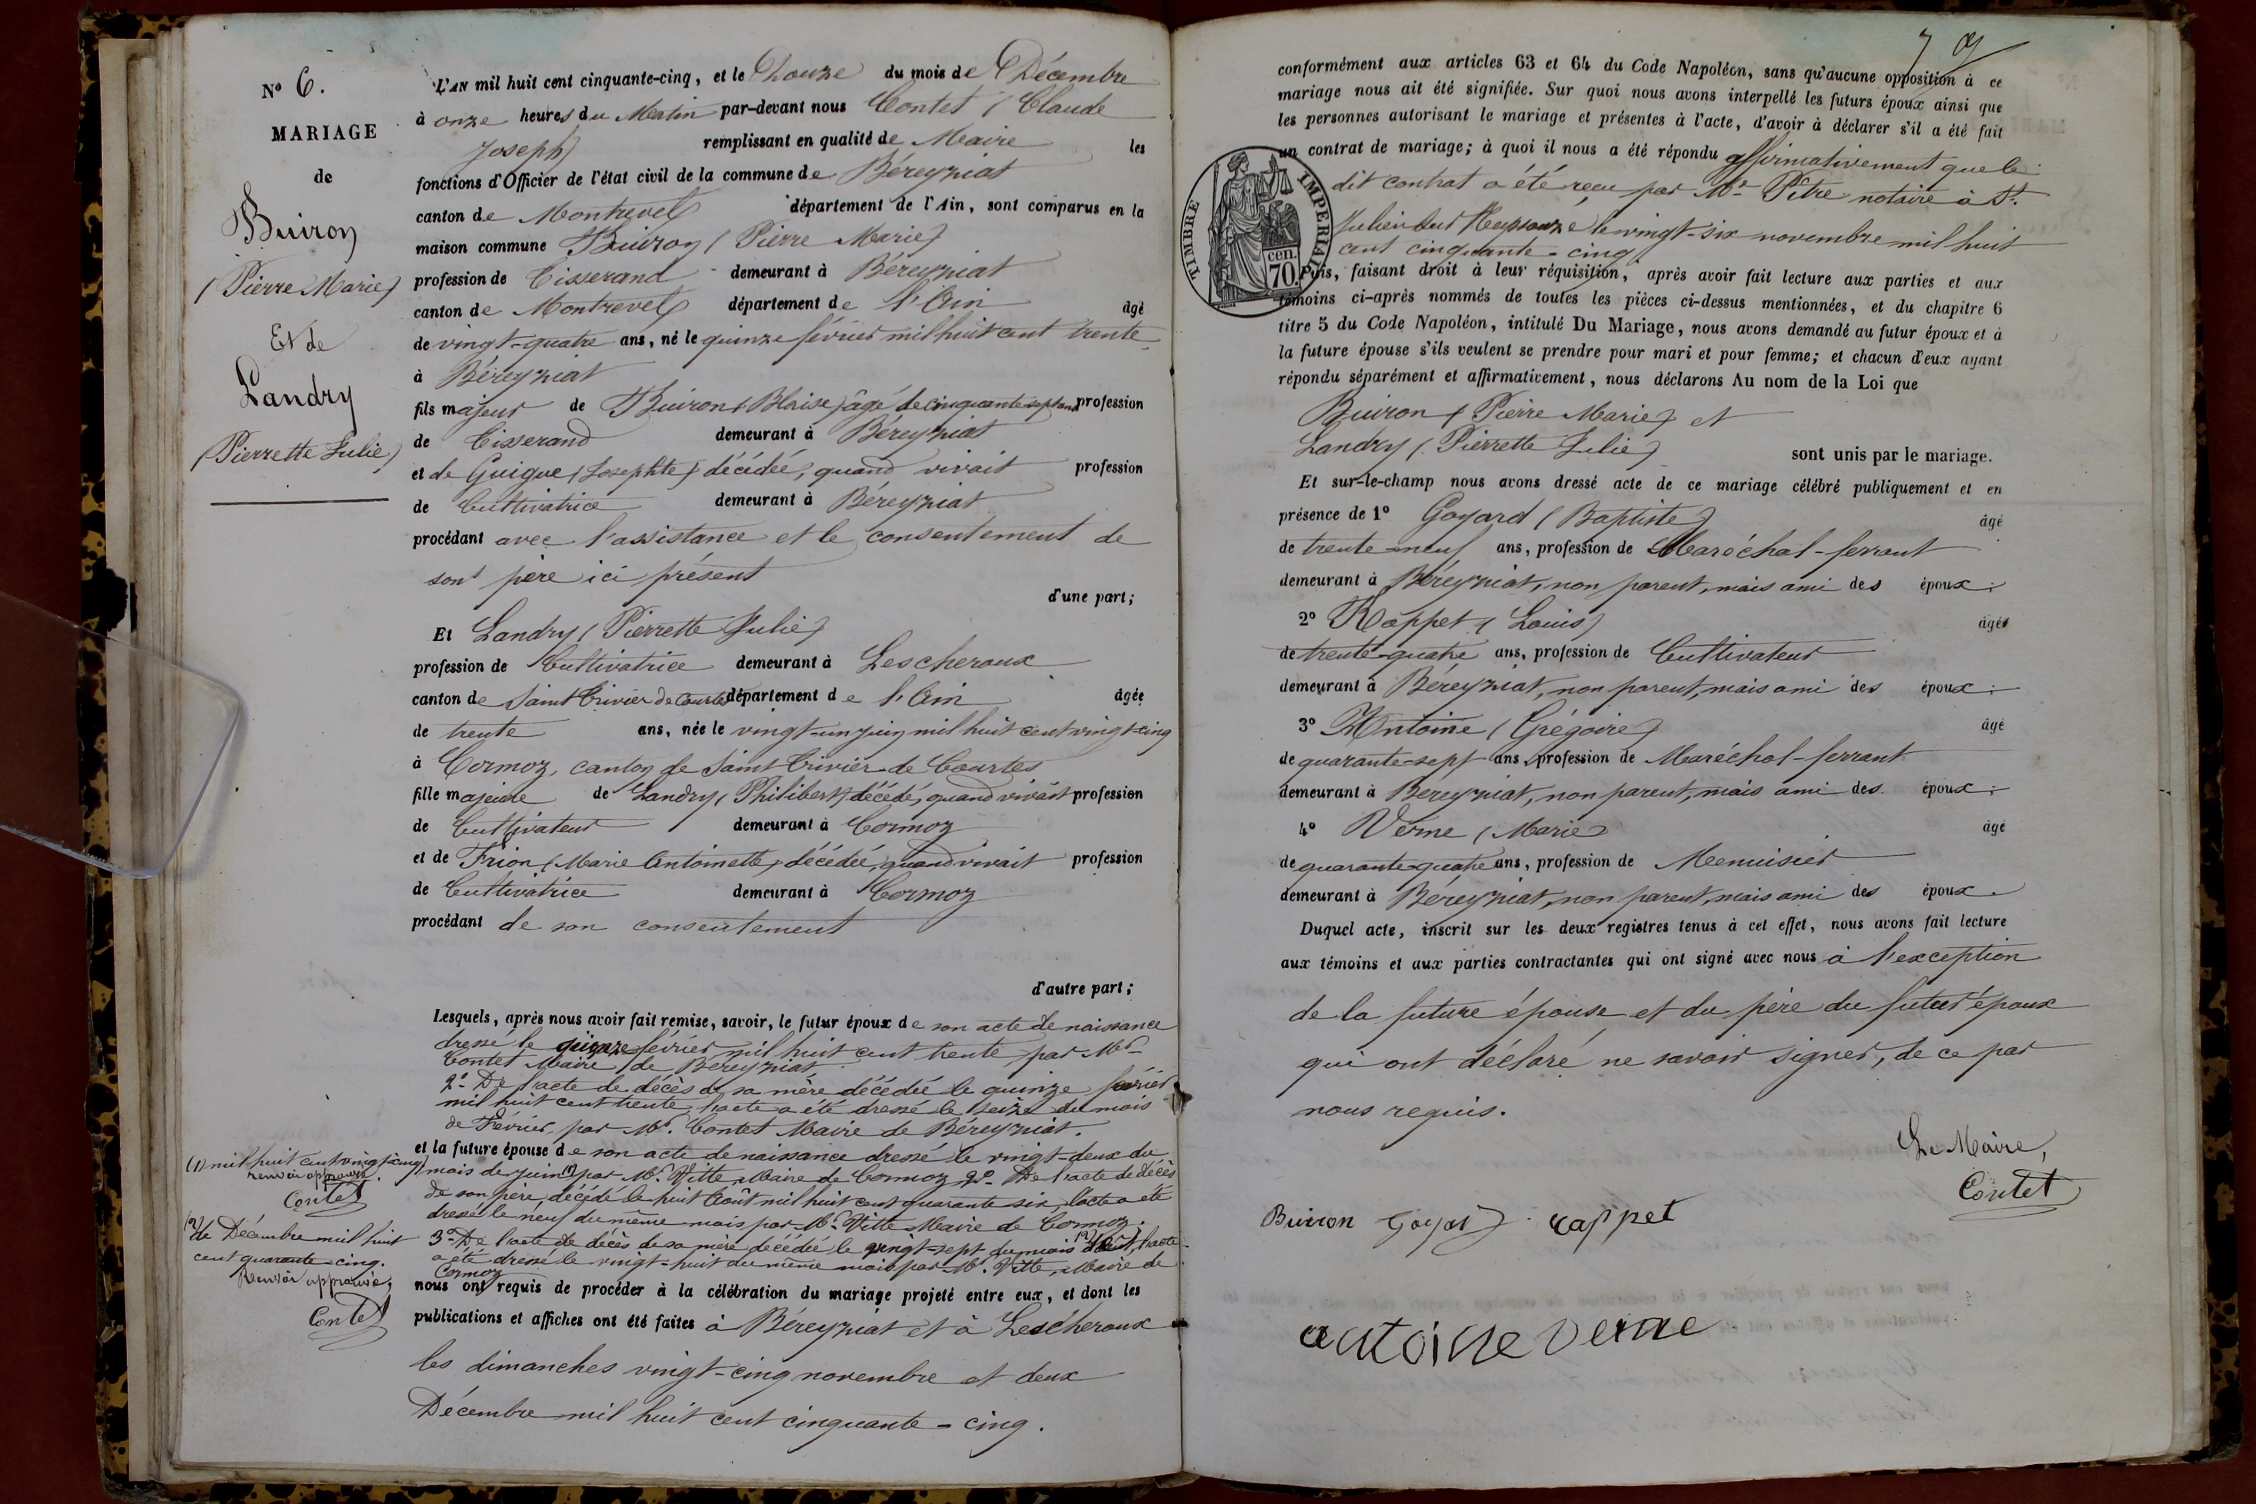 N° 6.
MARIAGE
de
Buiron
(Pierre Marie)
Et de
Landry
(Pierrette Julie)
L'AN mil huit cent cinquante-cinq, et le Douze du mois de Décembre
à onze heures du Matin par-devant nous Contet (Claude
Joseph) remplissant en qualité de Maire les
fonctions d'Officier de l'état civil de la commune de Béreyziat
canton de Montrevel département de l'Ain, sont comparus en la
maison commune Buiron (Pierre Marie)
profession de Tisserand demeurant à Béreyziat
canton de Montrevel département de l'Ain âgé
de vingt-quatre ans, né le quinze février mil huit cent trente
à Béreyziat
fils majeur de Buiron (Blaise) âgé de cinquante sept ans profession
de Tisserand demeurant à Béreyziat
et de Guigue (Josephte) décédée, quand vivait profession
de Cultivatrice demeurant à Béreyziat
procédant avec l'assistance et le consentement de
son père ici présent
d'une part;
Et Landry (Pierrette Julie)
profession de Cultivatrice demeurant à Lescheroux
canton de Saint Trivier de Courtes département de l'Ain âgée
de trente ans, née le vingt-un juin mil huit cent vingt-cinq
à Cormoz, canton de Saint Trivier de Courtes
fille majeure de Landry (Philibert) décédé, quand vivait profession
de Cultivateur demeurant à Cormoz
et de Frion (Marie Antoinette) décédée, quand vivait profession
de Cultivatrice demeurant à Cormoz
procédant de son consentement
d'autre part;
Lesquels, après nous avoir fait remise, savoir, le futur époux de son acte de naissance
dressé le quinze février mil huit cent trente par Mr
Contet Maire de Béreyziat
2° De l'acte de décès de sa mère décédée le quinze février
mil huit cent trente, l'acte a été dressé le seize du mois
de Février par Mr. Contet Maire de Béreyziat.
et la future épouse de son acte de naissance dressé le vingt-deux du
mois de juin (1) par Mr. Vitte Maire de Cormoz 2° De l'acte de décès
de son père, décédé le huit Août mil huit cent quarante six, l'acte a été
dressé le neuf du même mois par Mr. Vitte Maire de Cormoz.
3° De l'acte de décès de sa mère décédée le vingt-sept du mois (2) l'acte
a été dressé le vingt-huit du même mois par Mr. Vitte, Maire de
Cormoz
nous ont requis de procéder à la célébration du mariage projeté entre eux, et dont les
publications et affiches ont été faites à Béreyziat et à Lescheroux
les dimanches vingt-cinq novembre et deux
Décembre mil huit cent cinquante-cinq.
(1) mil huit cent vingt cinq
renvoi approuvé.
Contet
(2) de Décembre mil huit
cent quarante-cinq.
Renvoi approuvé,
Contet
79
conformément aux articles 63 et 64 du Code Napoléon, sans qu'aucune opposition à ce
mariage nous ait été signifiée. Sur quoi nous avons interpellé les futurs époux ainsi que
les personnes autorisant le mariage et présentes à l'acte, d'avoir à déclarer s'il a été fait
un contrat de mariage; à quoi il nous a été répondu affirmativement que le
dit contrat a été reçu par Me Pitre notaire à St.
Julien sur Reyssouze le vingt-six novembre mil huit
cent cinquante-cinq
TIMBRE IMPERIAL
70 cen.
Puis, faisant droit à leur réquisition, après avoir fait lecture aux parties et aux
témoins ci-après nommés de toutes les pièces ci-dessus mentionnées, et du chapitre 6
titre 5 du Code Napoléon, intitulé Du Mariage, nous avons demandé au futur époux et à
la future épouse s'ils veulent se prendre pour mari et pour femme; et chacun d'eux ayant
répondu séparément et affirmativement, nous déclarons Au nom de la Loi que
Buiron (Pierre Marie) et
Landry (Pierrette Julie)
sont unis par le mariage.
Et sur-le-champ nous avons dressé acte de ce mariage célébré publiquement et en
présence de 1° Goyard (Baptiste) âgé
de trente-neuf ans, profession de Maréchal-ferrant
demeurant à Béreyziat, non parent, mais ami des époux;
2° Rappet (Louis) âgé
de trente-quatre ans, profession de Cultivateur
demeurant à Béreyziat, non parent, mais ami des époux;
3° Antoine (Grégoire) âgé
de quarante-sept ans, profession de Maréchal-ferrant
demeurant à Béreyziat, non parent, mais ami des époux;
4° Verne (Marie) âgé
de quarante-quatre ans, profession de Menuisier
demeurant à Béreyziat, non parent, mais ami des époux.
Duquel acte, inscrit sur les deux registres tenus à cet effet, nous avons fait lecture
aux témoins et aux parties contractantes qui ont signé avec nous à l'exception
de la future épouse et du père du futur époux
qui ont déclaré ne savoir signer, de ce par
nous requis.
Le Maire,
Contet
Buiron Goyard rappet
antoine verne